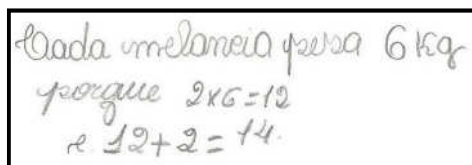 Cada melancia pesa 6 kg
porque 2x6=12
e 12+2=14.